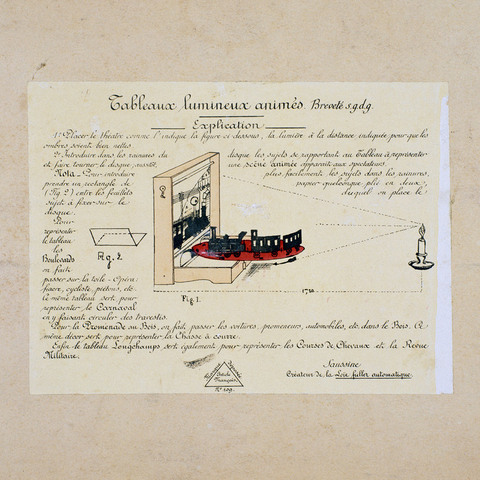 Tableaux lumineux animés. Breveté s.g.d.g.
Explication
1º Placer le théâtre comme l'indique la figure ci-dessous, la lumière à la distance indiquée, pour que les
ombres soient bien nettes
2º Introduire dans les rainures du disque les sujets se rapportant au Tableau à représenter
et faire tourner le disque, aussitôt une scène animée apparaît aux spectateurs.
Nota _ Pour introduire plus facilement les sujets dans les rainures,
prendre un rectangle de papier quelconque plié en deux,
(Fig 2) entre les feuillets duquel on place le
sujet à fixer sur le
disque.
Pour
représenter
le tableau
les
Boulevards
on fait
passer sur la toile - Opéra.
fiacre, cycliste, piétons, etc.
le même tableau sert pour
représenter le Carnaval
en y faisant circuler des travestis.
Fig. 2.
Fig. 1.
Pour la Promenade au Bois, on fait passer les voitures, promeneurs, automobiles, etc. dans le Bois. Ce
même décor sert pour représenter la Chasse à courre.
Enfin le tableau Longchamps sert également pour représenter les Courses de Chevaux et la Revue
Militaire.
Saussine
Créateur de la Loïe fuller automatique.
Article
Français
Nº 109.